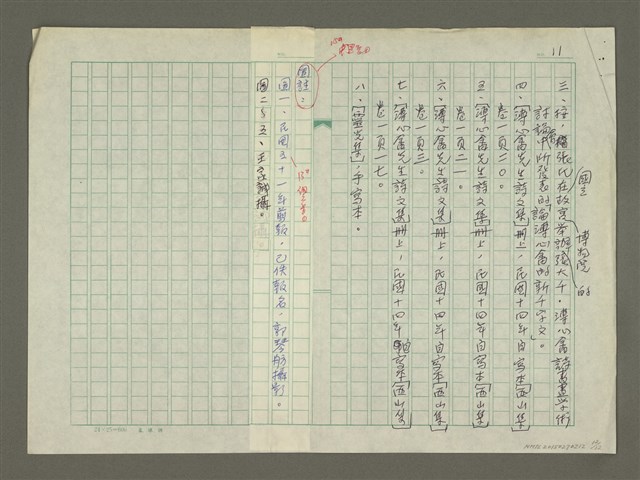 11
三、按,張氏在故宮國立博物院的舉辦張大千、溥心畬詩書畫學術
討論中所發表的論溥心畬的新千字文」。
四、[溥心畬先生詩文集]冊上,民國十四年自寫本[西山集]
卷一頁二〇。
五、[溥心畬先生詩文集]冊上,民國十四年自寫本[西山集]
卷一頁二一。
六、[溥心畬先生詩文集]冊上,民國十四年自寫本[西山集]
卷一頁三。
七、[溥心畬先生詩文集]冊上,民國十四年自寫本[西山集]
卷一頁一七。
八、[靈光集],手寫本。
圖註:
圖一、民國五十一年剪報,已佚報名,郭琴舫攝影。
圖二~五、王家誠攝。